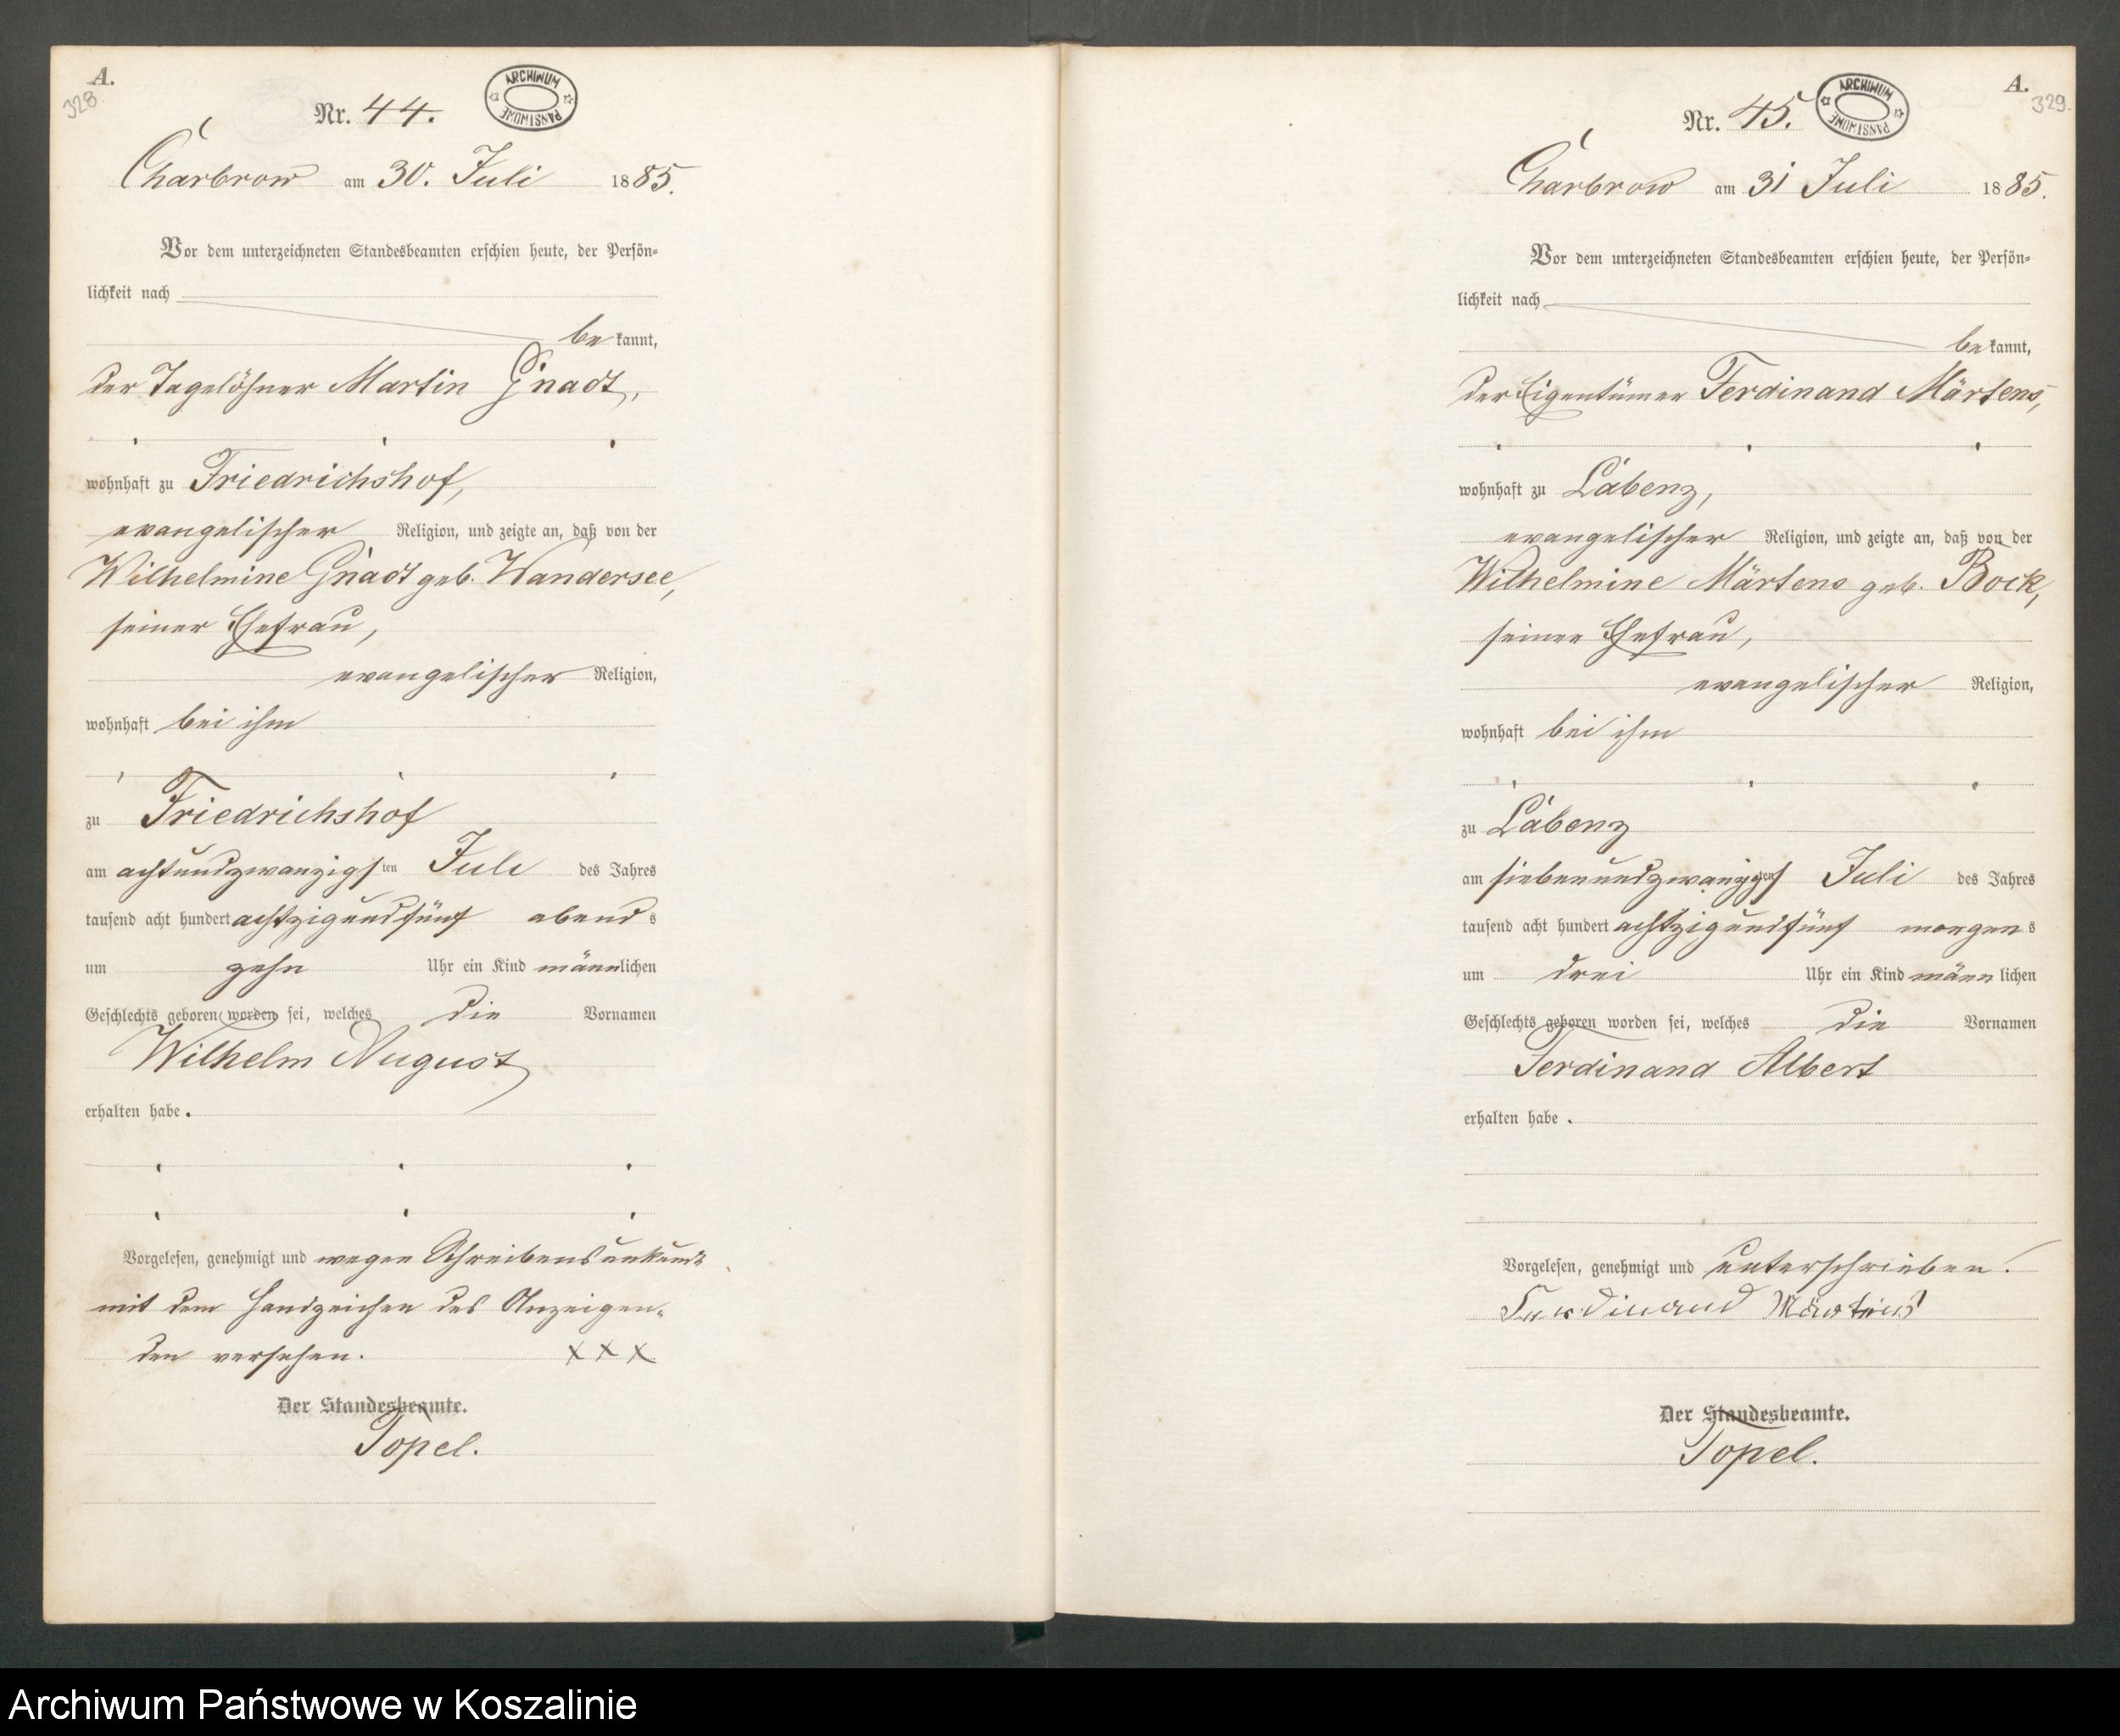 A.
328.
Nr. 44.
ARCHIWUM PAŃSTWOWE
Charbrow am 30. Juli 1885.
Vor dem unterzeichneten Standesbeamten erschien heute, der Persön-
lichkeit nach
bekannt,
der Tagelöhner Martin Gnadt,
wohnhaft zu Friedrichshof,
evangelischer Religion, und zeigte an, daß von der
Wilhelmine Gnadt geb. Wandersee,
seiner Ehefrau,
evangelischer Religion,
wohnhaft bei ihm
zu Friedrichshof
am achtundzwanzigsten Juli des Jahres
tausend acht hundert achtzigundfünf abends
um zehn Uhr ein Kind männlichen
Geschlechts geboren worden sei, welches die Vornamen
Wilhelm August
erhalten habe.
Vorgelesen, genehmigt und wegen Schreibensunkunde
mit dem Handzeichen des Anzeigen-
den versehen. XXX
Der Standesbeamte.
Topel.
A.
329.
Nr. 45.
ARCHIWUM PAŃSTWOWE
Charbrow am 31 Juli 1885.
Vor dem unterzeichneten Standesbeamten erschien heute, der Persön-
lichkeit nach
bekannt,
der Eigentümer Ferdinand Märtens,
wohnhaft zu Labenz,
evangelischer Religion, und zeigte an, daß von der
Wilhelmine Märtens geb. Bock,
seiner Ehefrau,
evangelischer Religion,
wohnhaft bei ihm
zu Labenz
am siebenundzwanzigsten Juli des Jahres
tausend acht hundert achtzigundfünf morgens
um drei Uhr ein Kind männlichen
Geschlechts geboren worden sei, welches die Vornamen
Ferdinand Albert
erhalten habe.
Vorgelesen, genehmigt und unterschrieben.
Ferdinand Märtens
Der Standesbeamte.
Topel.
Archiwum Państwowe w Koszalinie